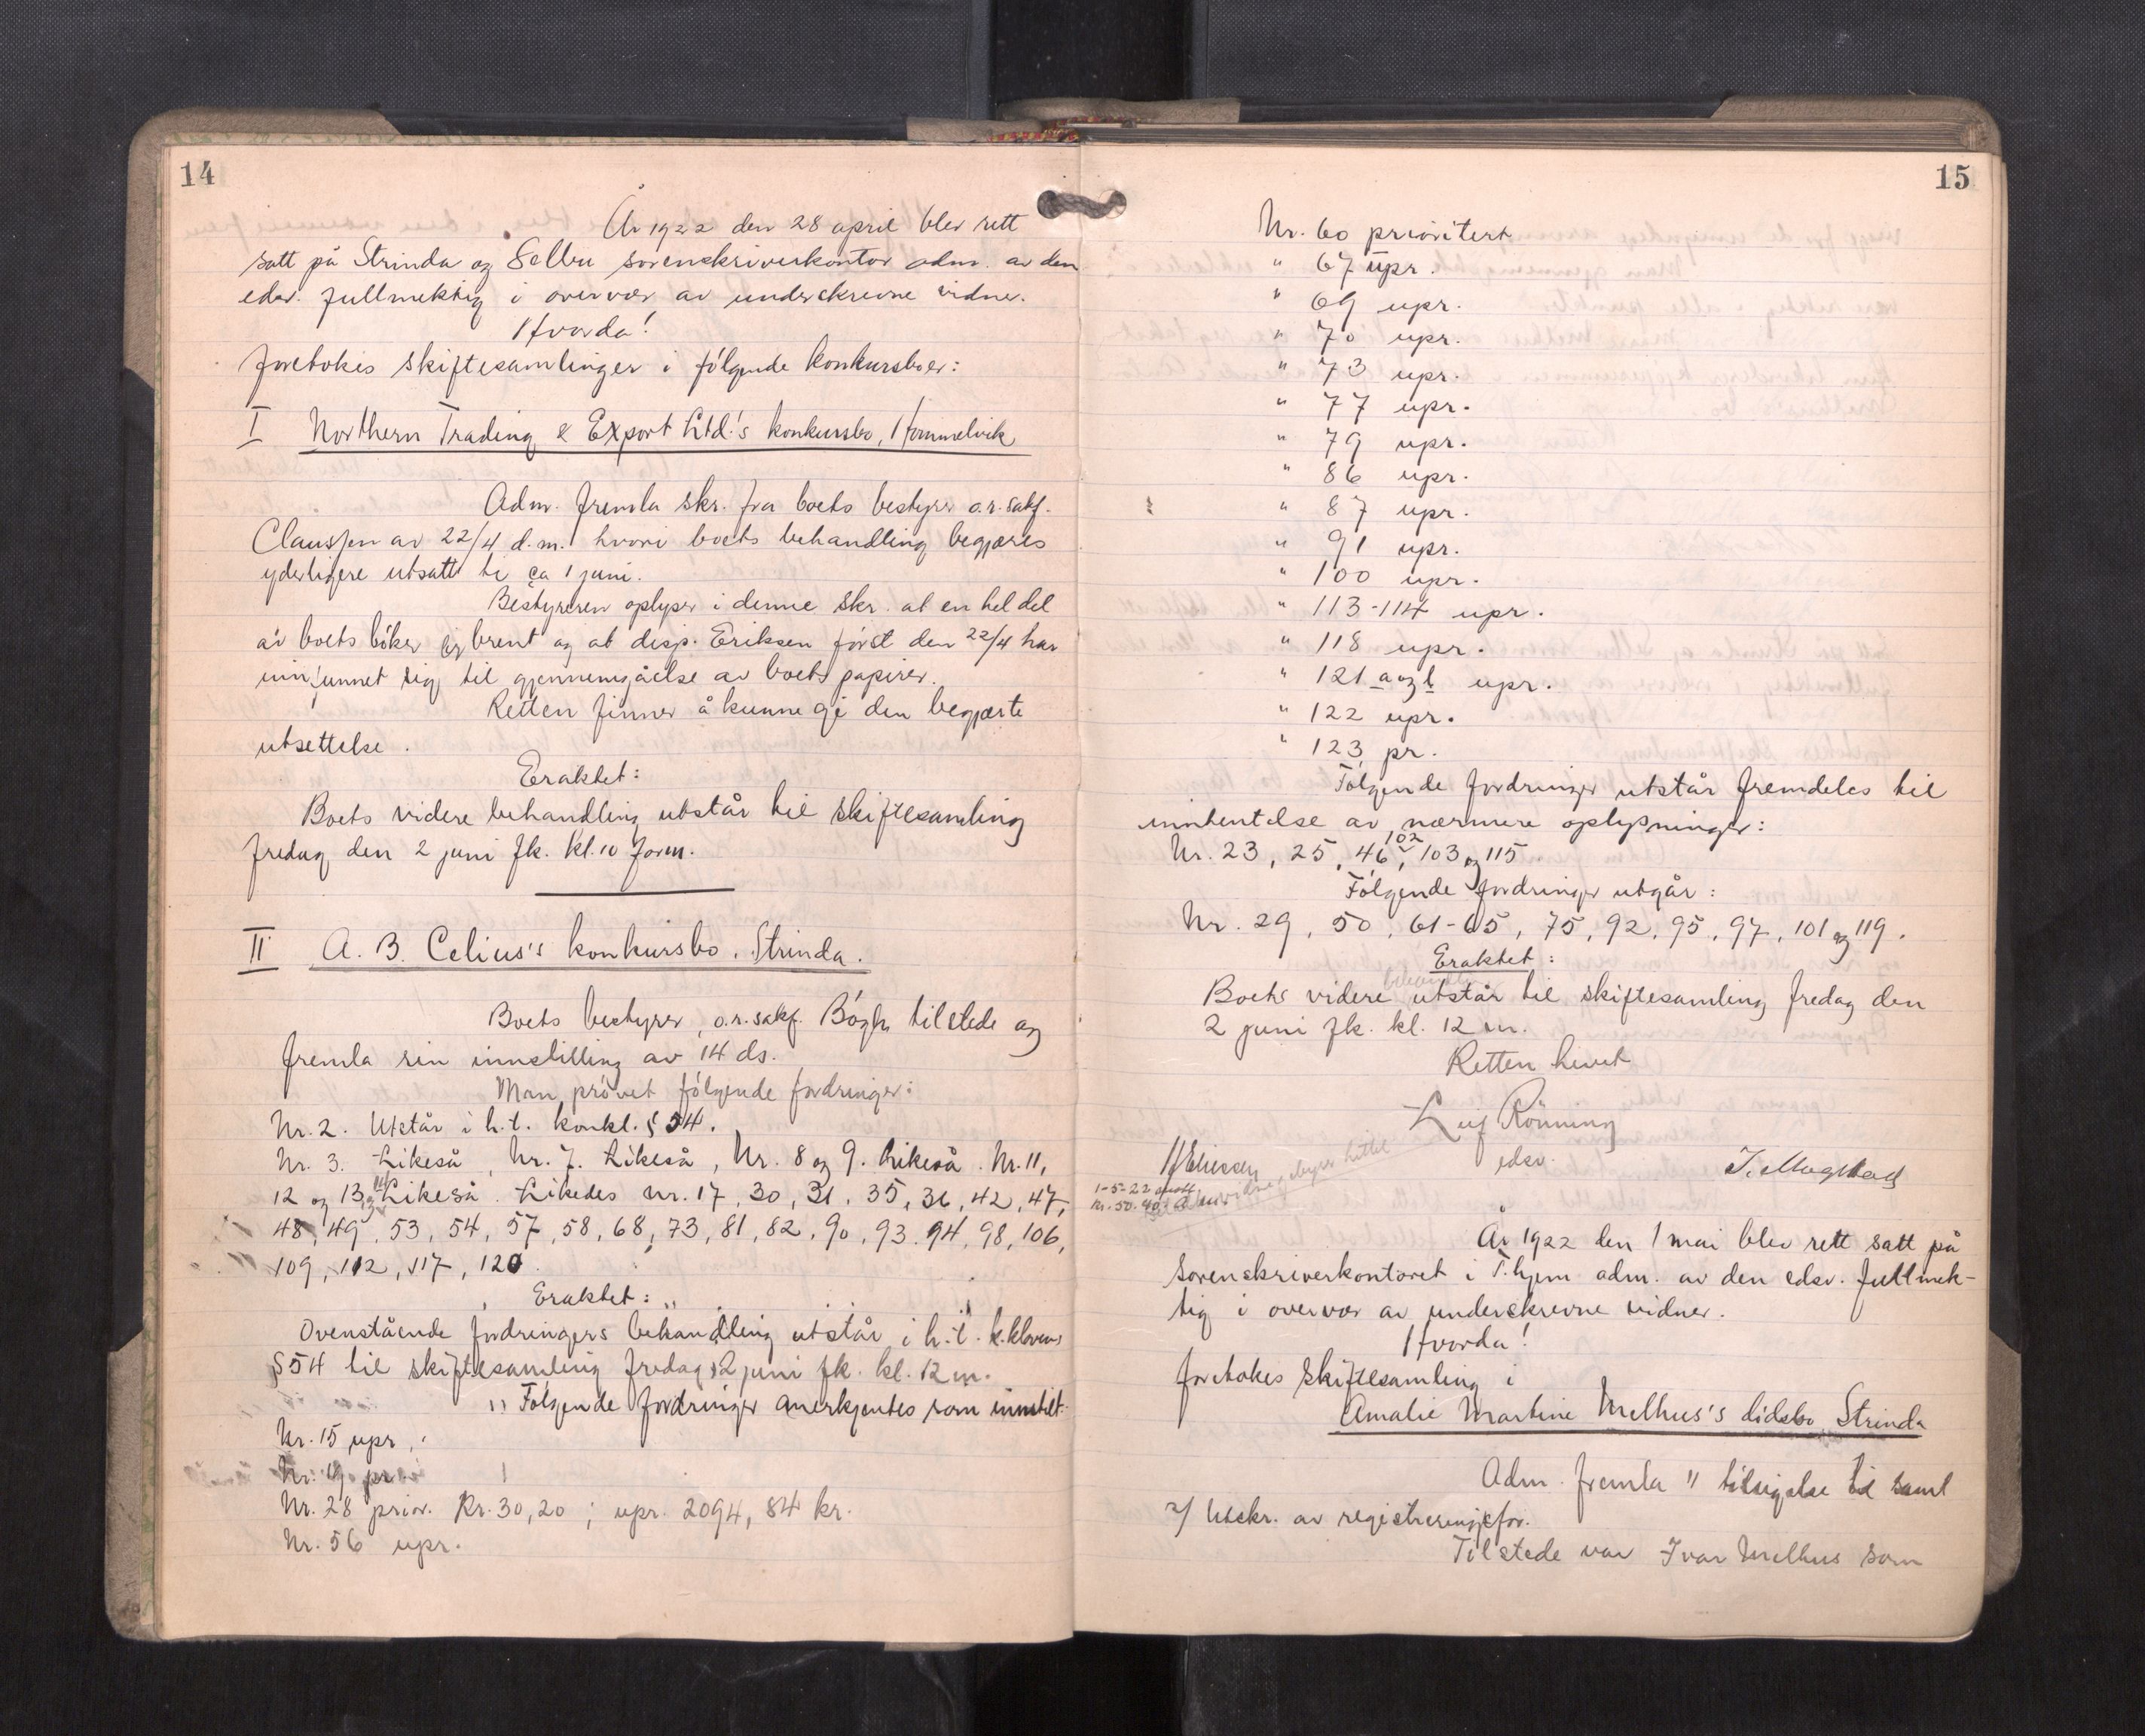 14
År 1922 den 28 april blev rett
satt på Strinda og Selbu sorenskriverkontor adm. av den
edsv. fullmektig i overvær av underskrevne vidner.
Hvorda!
foretokes skiftesamlinger i følgende konkursboer:
I Northern Trading & Export Ltd.'s konkursbo, Hommelvik
Adm. fremla skr. fra boets bestyrer o.r.sakf.
Claussen av 22/4 d.m. hvori boets behandling begjæres
yderligere utsatt til ca 1 juni.
Bestyreren oplyser i denne skr. at en hel del
av boets bøker er brent og at disp. Eriksen først den 22/4 har
innfunnet sig til gjennemgåelse av boets papirer.
Retten finner å kunne gi den begjærte
utsettelse.
Eraktet:
Boets videre behandling utstår til skiftesamling
fredag den 2 juni fk. kl. 10 form.
II A. B. Celius's konkursbo, Strinda.
Boets bestyrer, o.r.sakf. Bøgh tilstede og
fremla sin innstilling av 14 ds.
Man prøvet følgende fordringer:
Nr. 2. Utstår i h.t. konkl. § 54.
Nr. 3. Likeså, Nr. 7. Likeså, Nr. 8 og 9. Likeså. Nr. 11,
12 og 13 Likeså. Likedes nr. 17, 30, 31, 35, 36, 42, 47,
48, 49, 53, 54, 57, 58, 68, 73, 81, 82, 90, 93, 94, 98, 106,
109, 112, 117, 120.
Eraktet:
Ovenstående fordringers behandling utstår i h.t. k.klovens
§ 54 til skiftesamling fredag 2 juni fk. kl. 12 m.
Følgende fordringer anerkjentes som innstilt:
Nr. 15 upr.
Nr. 19 pr.
Nr. 28 prior. Kr. 30,20; upr. 2094,84 kr.
Nr. 56 upr.
15
Nr. 60 prioritert
" 67 upr.
" 69 upr.
" 70 upr.
" 73 upr.
" 77 upr.
" 79 upr.
" 86 upr.
" 87 upr.
" 91 upr.
" 100 upr.
" 113-114 upr.
" 118 upr.
" 121 a og b upr.
" 122 upr.
" 123 pr.
Følgende fordringer utstår fremdeles til
innhentelse av nærmere oplysninger:
Nr. 23, 25, 46, 102, 103 og 115.
Følgende fordringer utgår:
Nr. 29, 50, 61-65, 75, 92, 95, 97, 101 og 119.
Eraktet:
Boets videre behandling utstår til skiftesamling fredag den
2 juni fk. kl. 12 m.
Retten hevet
Leif Rönning
edsv.
1-5-22
År 1922 den 1 mai blev rett satt på
sorenskriverkontoret i T.hjem adm. av den edsv. fullmek-
tig i overvær av underskrevne vidner.
Hvorda!
foretokes skiftesamling i
Amalie Martine Melhus's dødsbo, Strinda
Adm. fremla 1/ tilsigelse til saml
2/ Utskr. av registreringsfor.
Tilstede var Ivar Melhus som